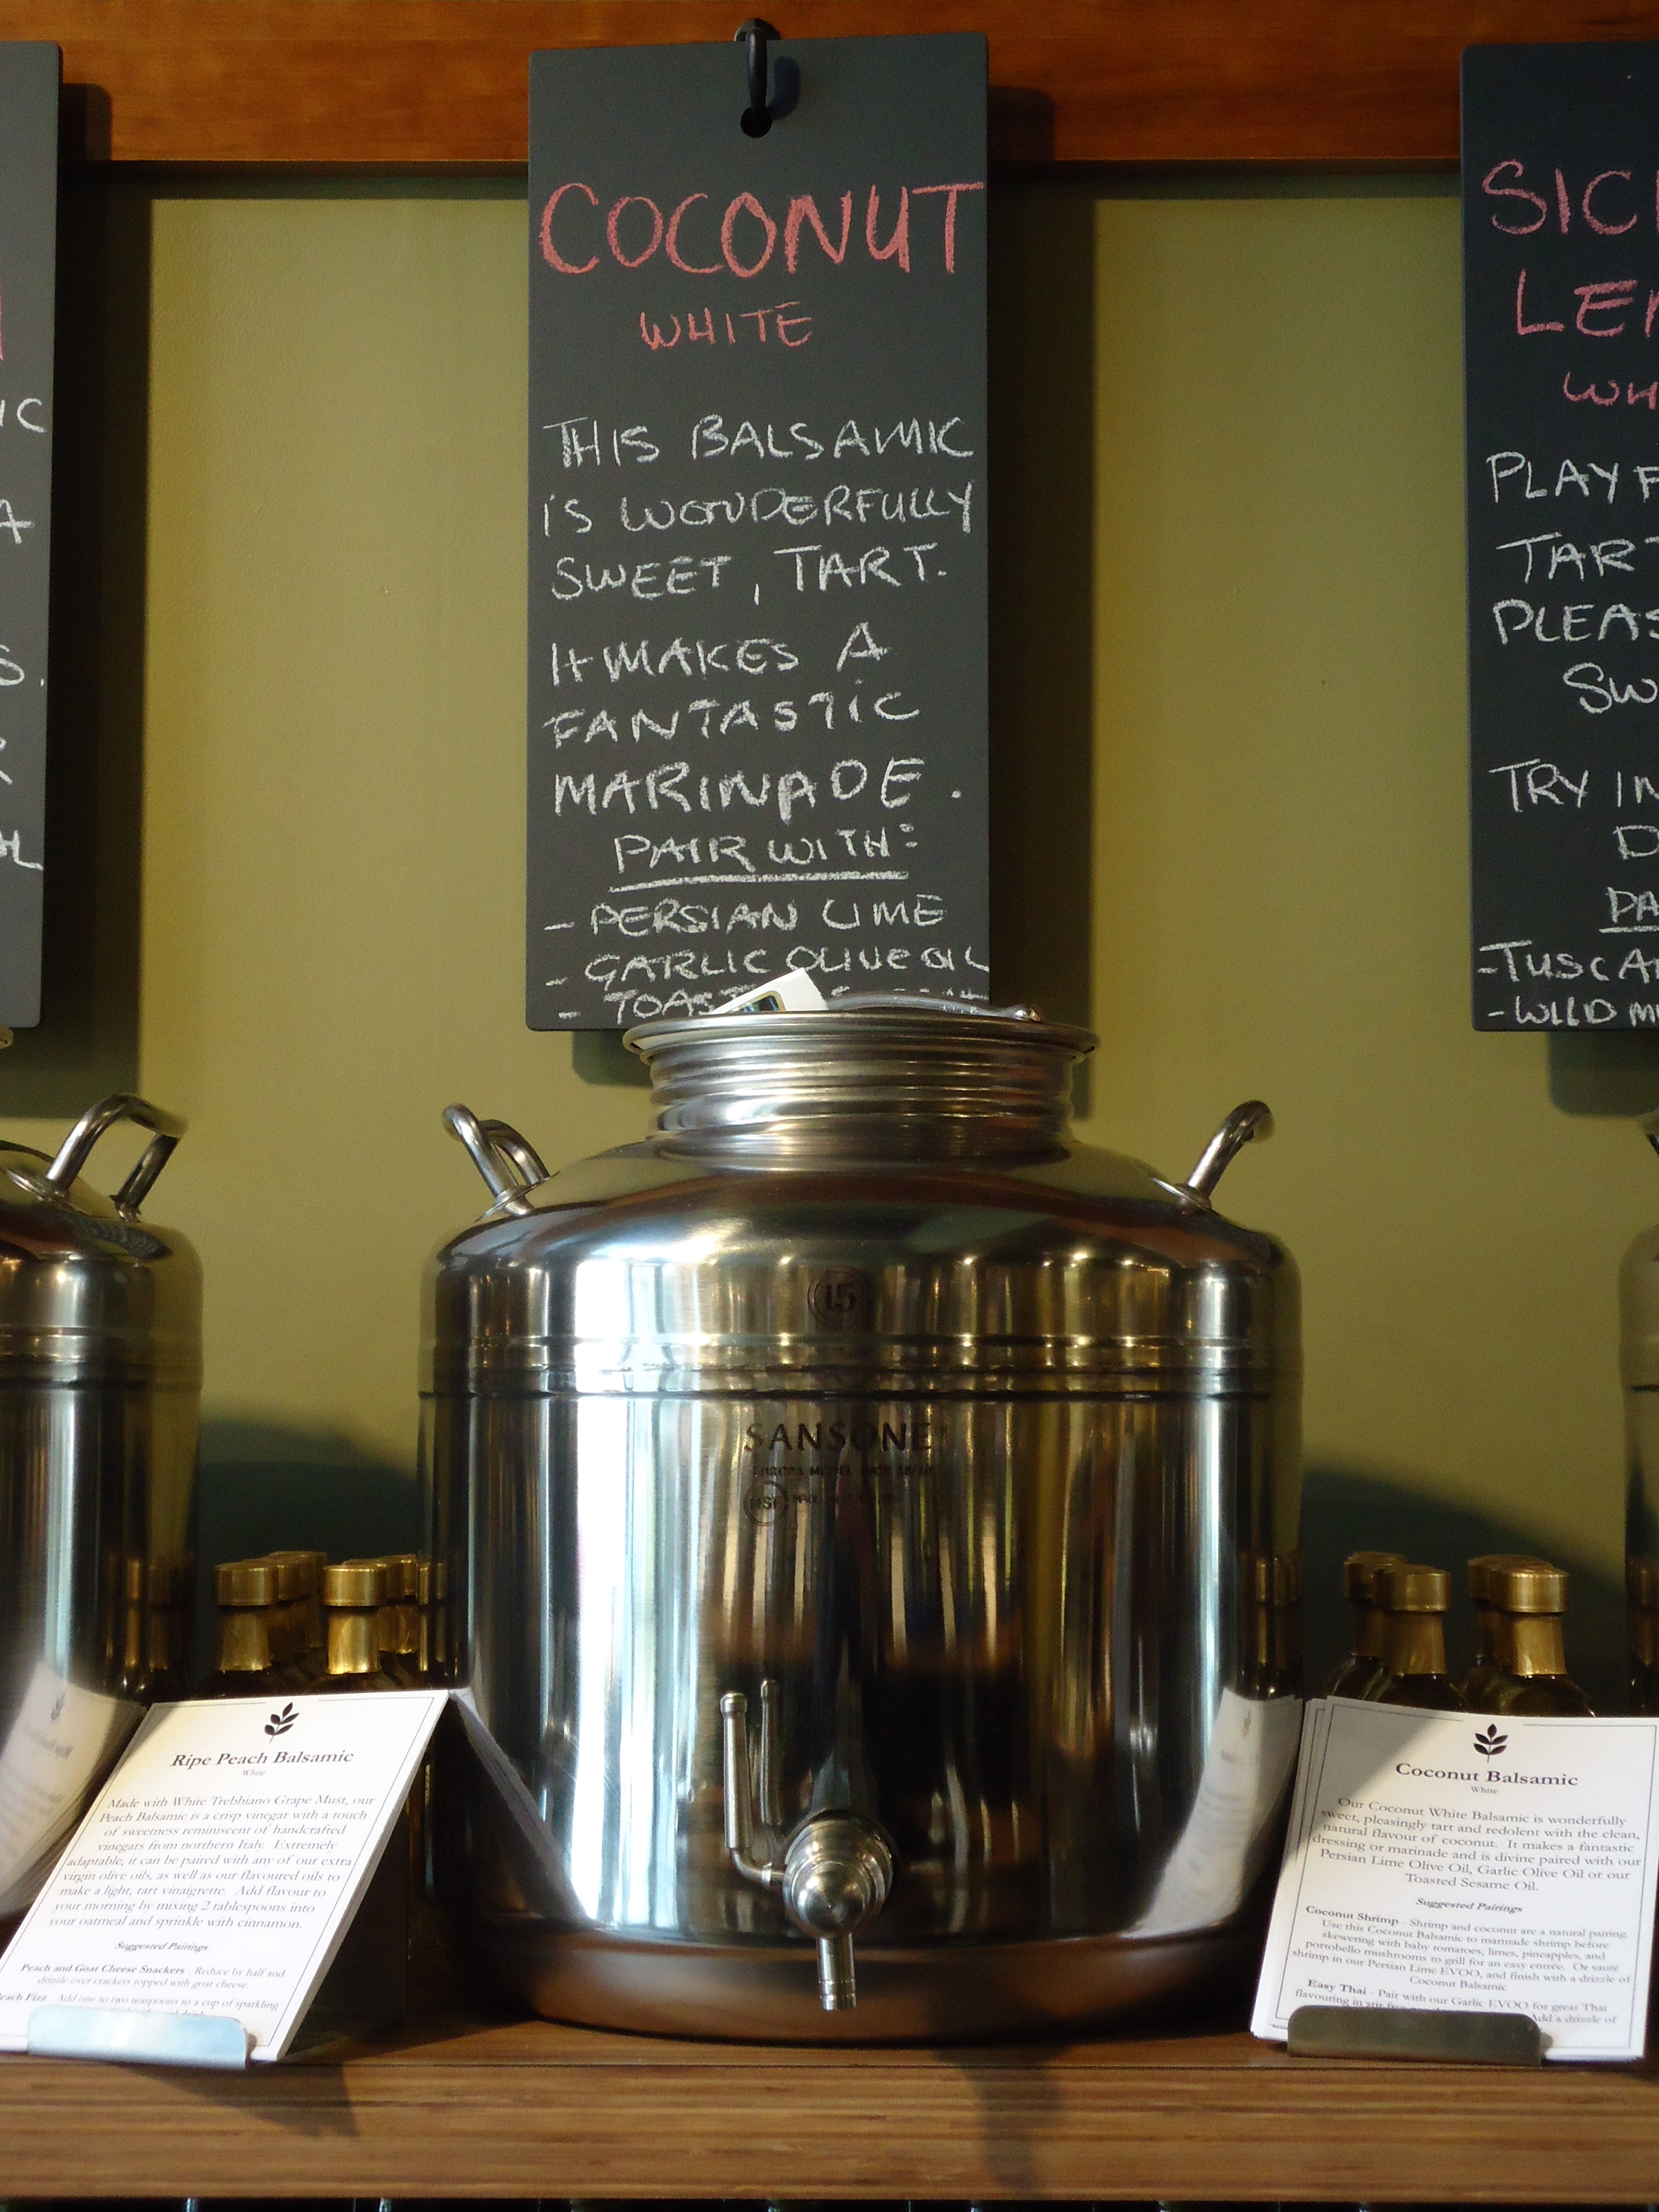 COCONUT
WHITE
THIS BALSAMIC
IS WONDERFULLY
SWEET, TART.
It MAKES A
FANTASTIC
MARINADE.
PAIR WITH:
- PERSIAN LIME
- GARLIC OLIVE OIL
IC
A
S.
R
OL
SIC
LE
WH
PLAYF
TART
PLEAS
SW
TRY IN
D
PA
-TUSCA
- WILD M
15
SANSONE
NSF
Ripe Peach Balsamic
White
Made with White Trebbiano Grape Must, our
Peach Balsamic is a crisp vinegar with a touch
of sweetness reminiscent of handcrafted
vinegars from northern Italy. Extremely
adaptable, it can be paired with any of our extra
virgin olive oils, as well as our flavoured oils to
make a light, tart vinaigrette. Add flavour to
your morning by mixing 2 tablespoons into
your oatmeal and sprinkle with cinnamon.
Suggested Pairings
Peach and Goat Cheese Snackers - Reduce by half and
drizzle over crackers topped with goat cheese.
Peach Fizz - Add one to two teaspoons to a cup of sparkling
Coconut Balsamic
White
Our Coconut White Balsamic is wonderfully
sweet, pleasingly tart and redolent with the clean,
natural flavour of coconut. It makes a fantastic
dressing or marinade and is divine paired with our
Persian Lime Olive Oil, Garlic Olive Oil or our
Toasted Sesame Oil.
Suggested Pairings
Coconut Shrimp - Shrimp and coconut are a natural pairing.
Use this Coconut Balsamic to marinade shrimp before
skewering with baby tomatoes, limes, pineapples, and
portobello mushrooms to grill for an easy entrée. Or sauté
shrimp in our Persian Lime EVOO, and finish with a drizzle of
Coconut Balsamic
Easy Thai - Pair with our Garlic EVOO for great Thai
flavouring in stir Add a drizzle of